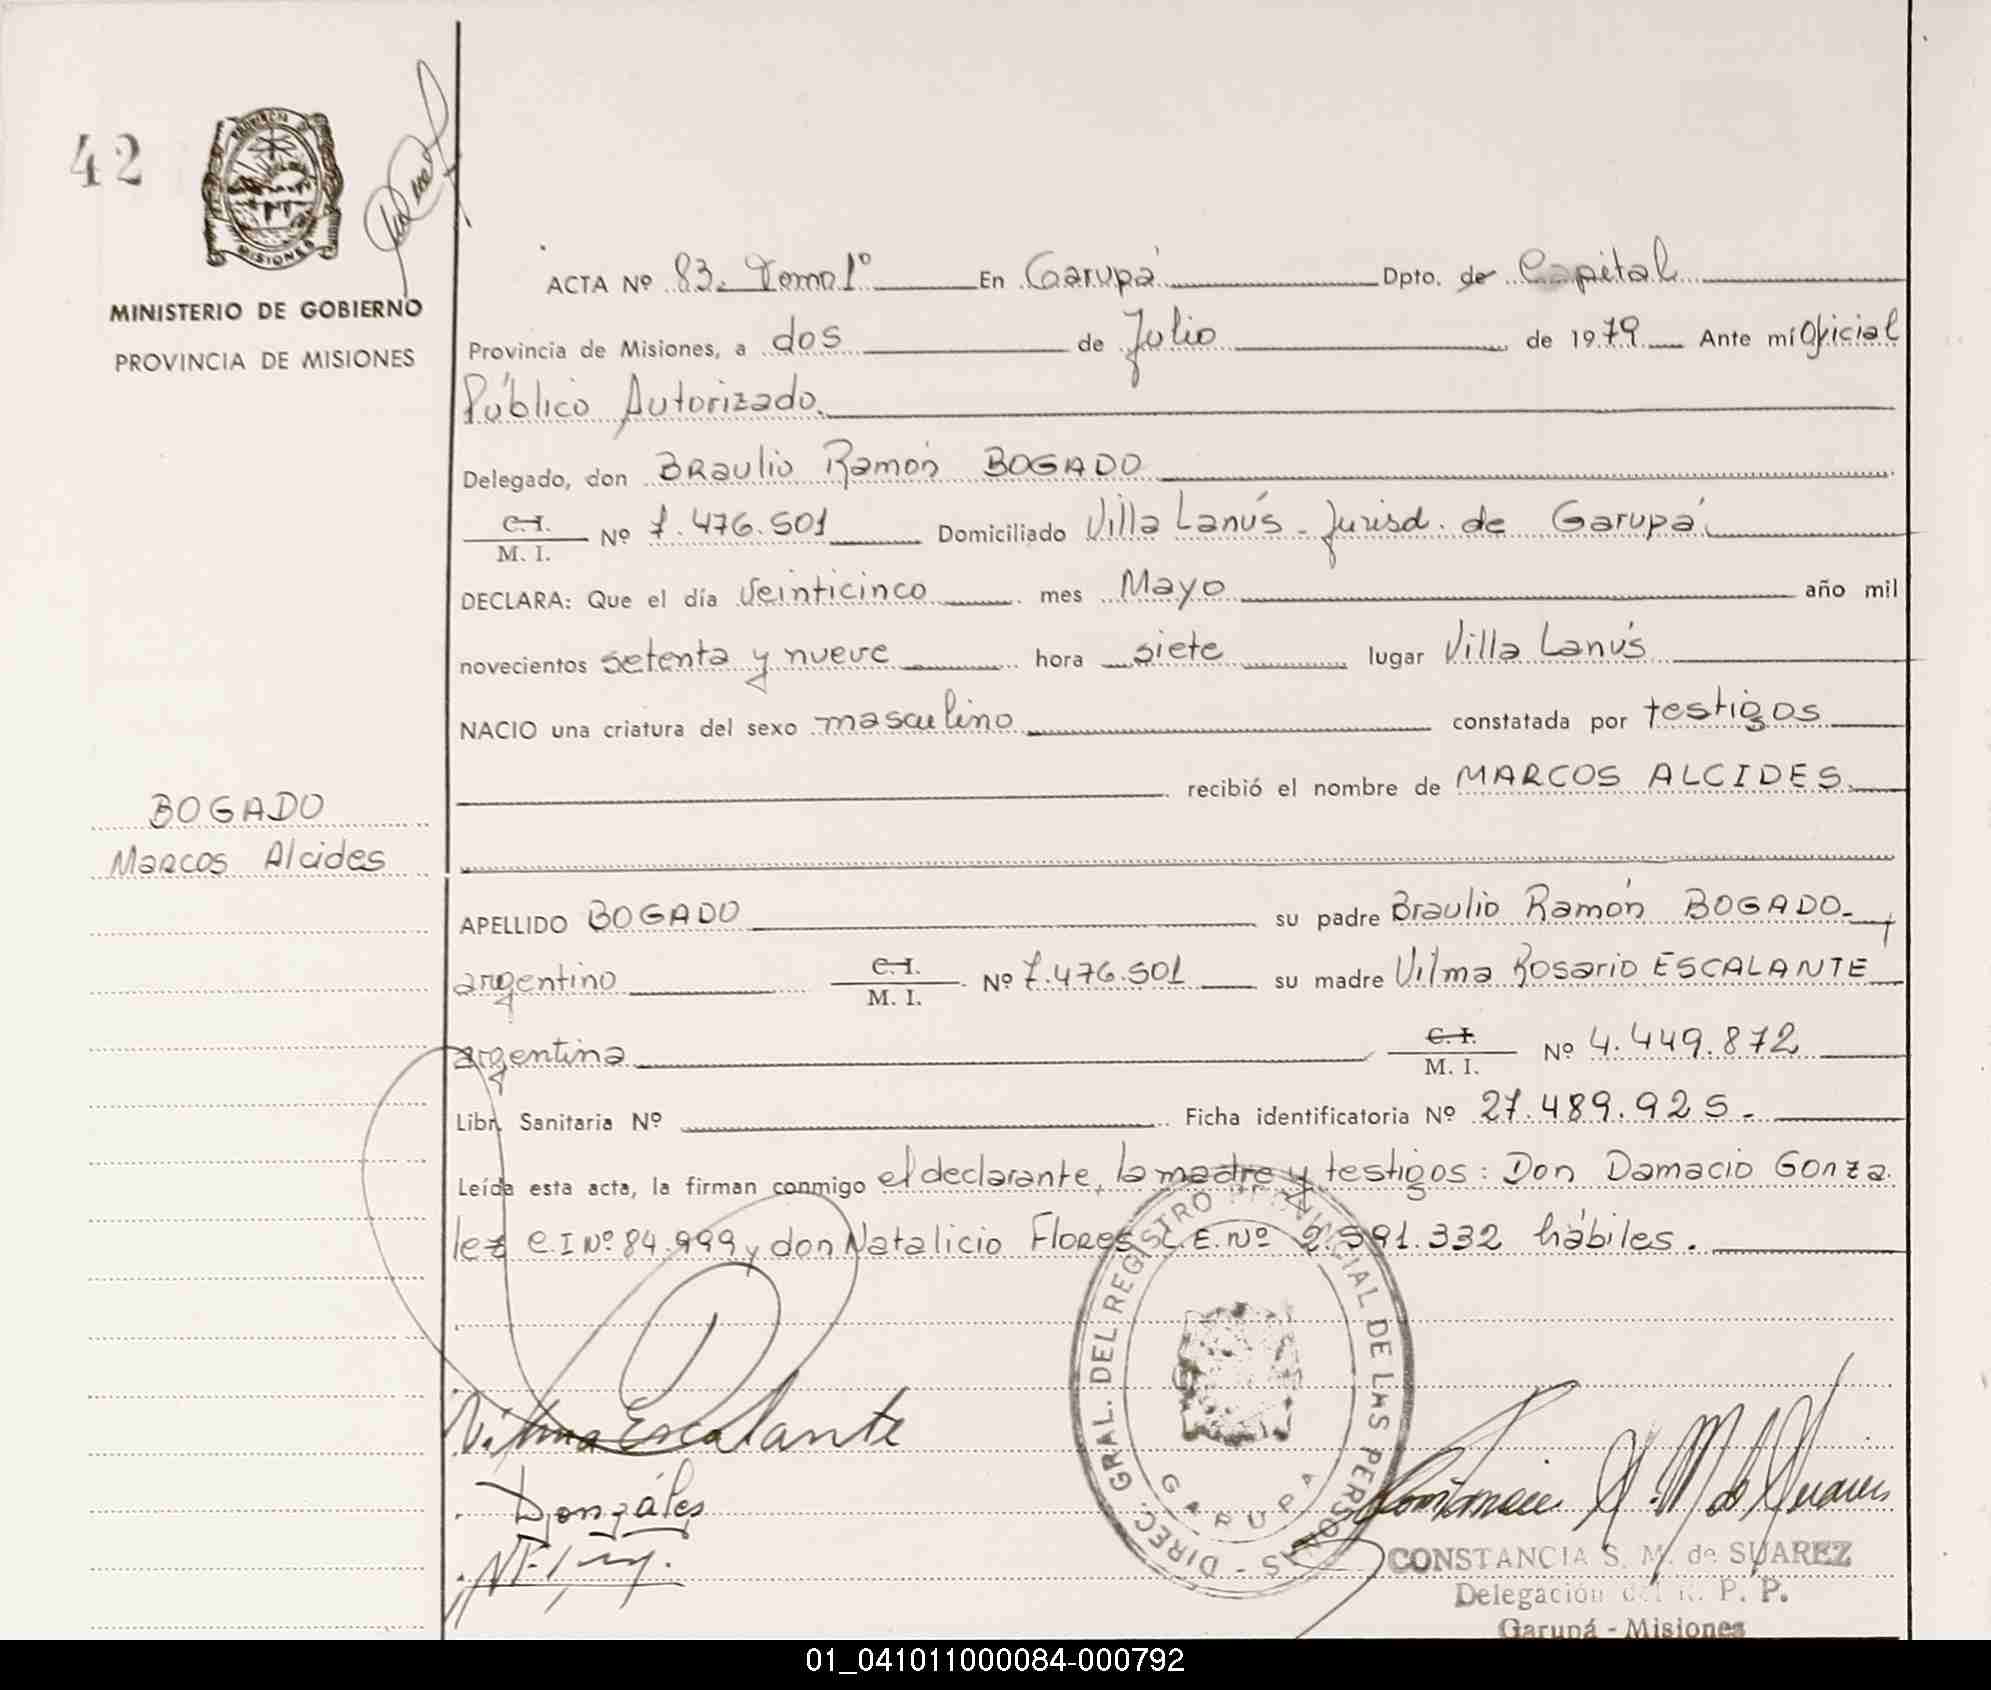 42
PROVINCIA DE
MISIONES
MINISTERIO DE GOBIERNO
PROVINCIA DE MISIONES
ACTA Nº 83. Tomo 1º En Garupá Dpto. de Capital
Provincia de Misiones, a dos de Julio de 1979 Ante mí Oficial
Público Autorizado.
Delegado, don Braulio Ramón BOGADO
C.I.
M. I. Nº 7.476.501 Domiciliado Villa Lanús - Jurisd. de Garupá
DECLARA: Que el día veinticinco mes Mayo año mil
novecientos setenta y nueve hora siete lugar Villa Lanús
NACIO una criatura del sexo masculino constatada por testigos
recibió el nombre de MARCOS ALCIDES.
BOGADO
Marcos Alcides
APELLIDO BOGADO su padre Braulio Ramón BOGADO-,
argentino C.I. M. I. Nº 7.476.501 su madre Vilma Rosario ESCALANTE
argentina C.I. M. I. Nº 4.449.872
Libr. Sanitaria Nº Ficha identificatoria Nº 27.489.925.-
Leída esta acta, la firman conmigo el declarante, la madre y testigos: Don Damacio Gonza
lez C.I Nº 84.999 y don Natalicio Flores L.E. Nº 2.591.332 hábiles.
DIREC. GRAL. DEL REGISTRO PROVINCIAL DE LAS PERSONAS -
GARUPA
Vilma Escalante
Donzáles
CONSTANCIA S. M. de SUAREZ
Delegación del R. P. P.
Garupá - Misiones
01_041011000084-000792